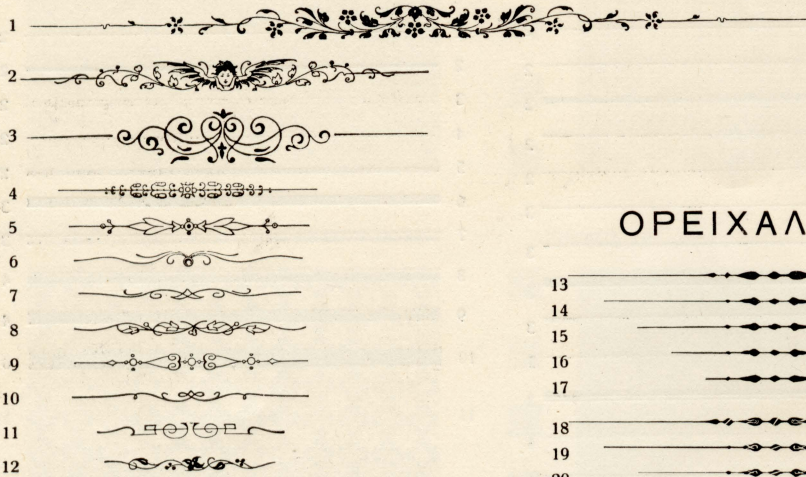 1
2
3
4
5
6
7
8
9
10
11
12
ΟΡΕΙΧΑΛ
13
14
15
16
17
18
19
20